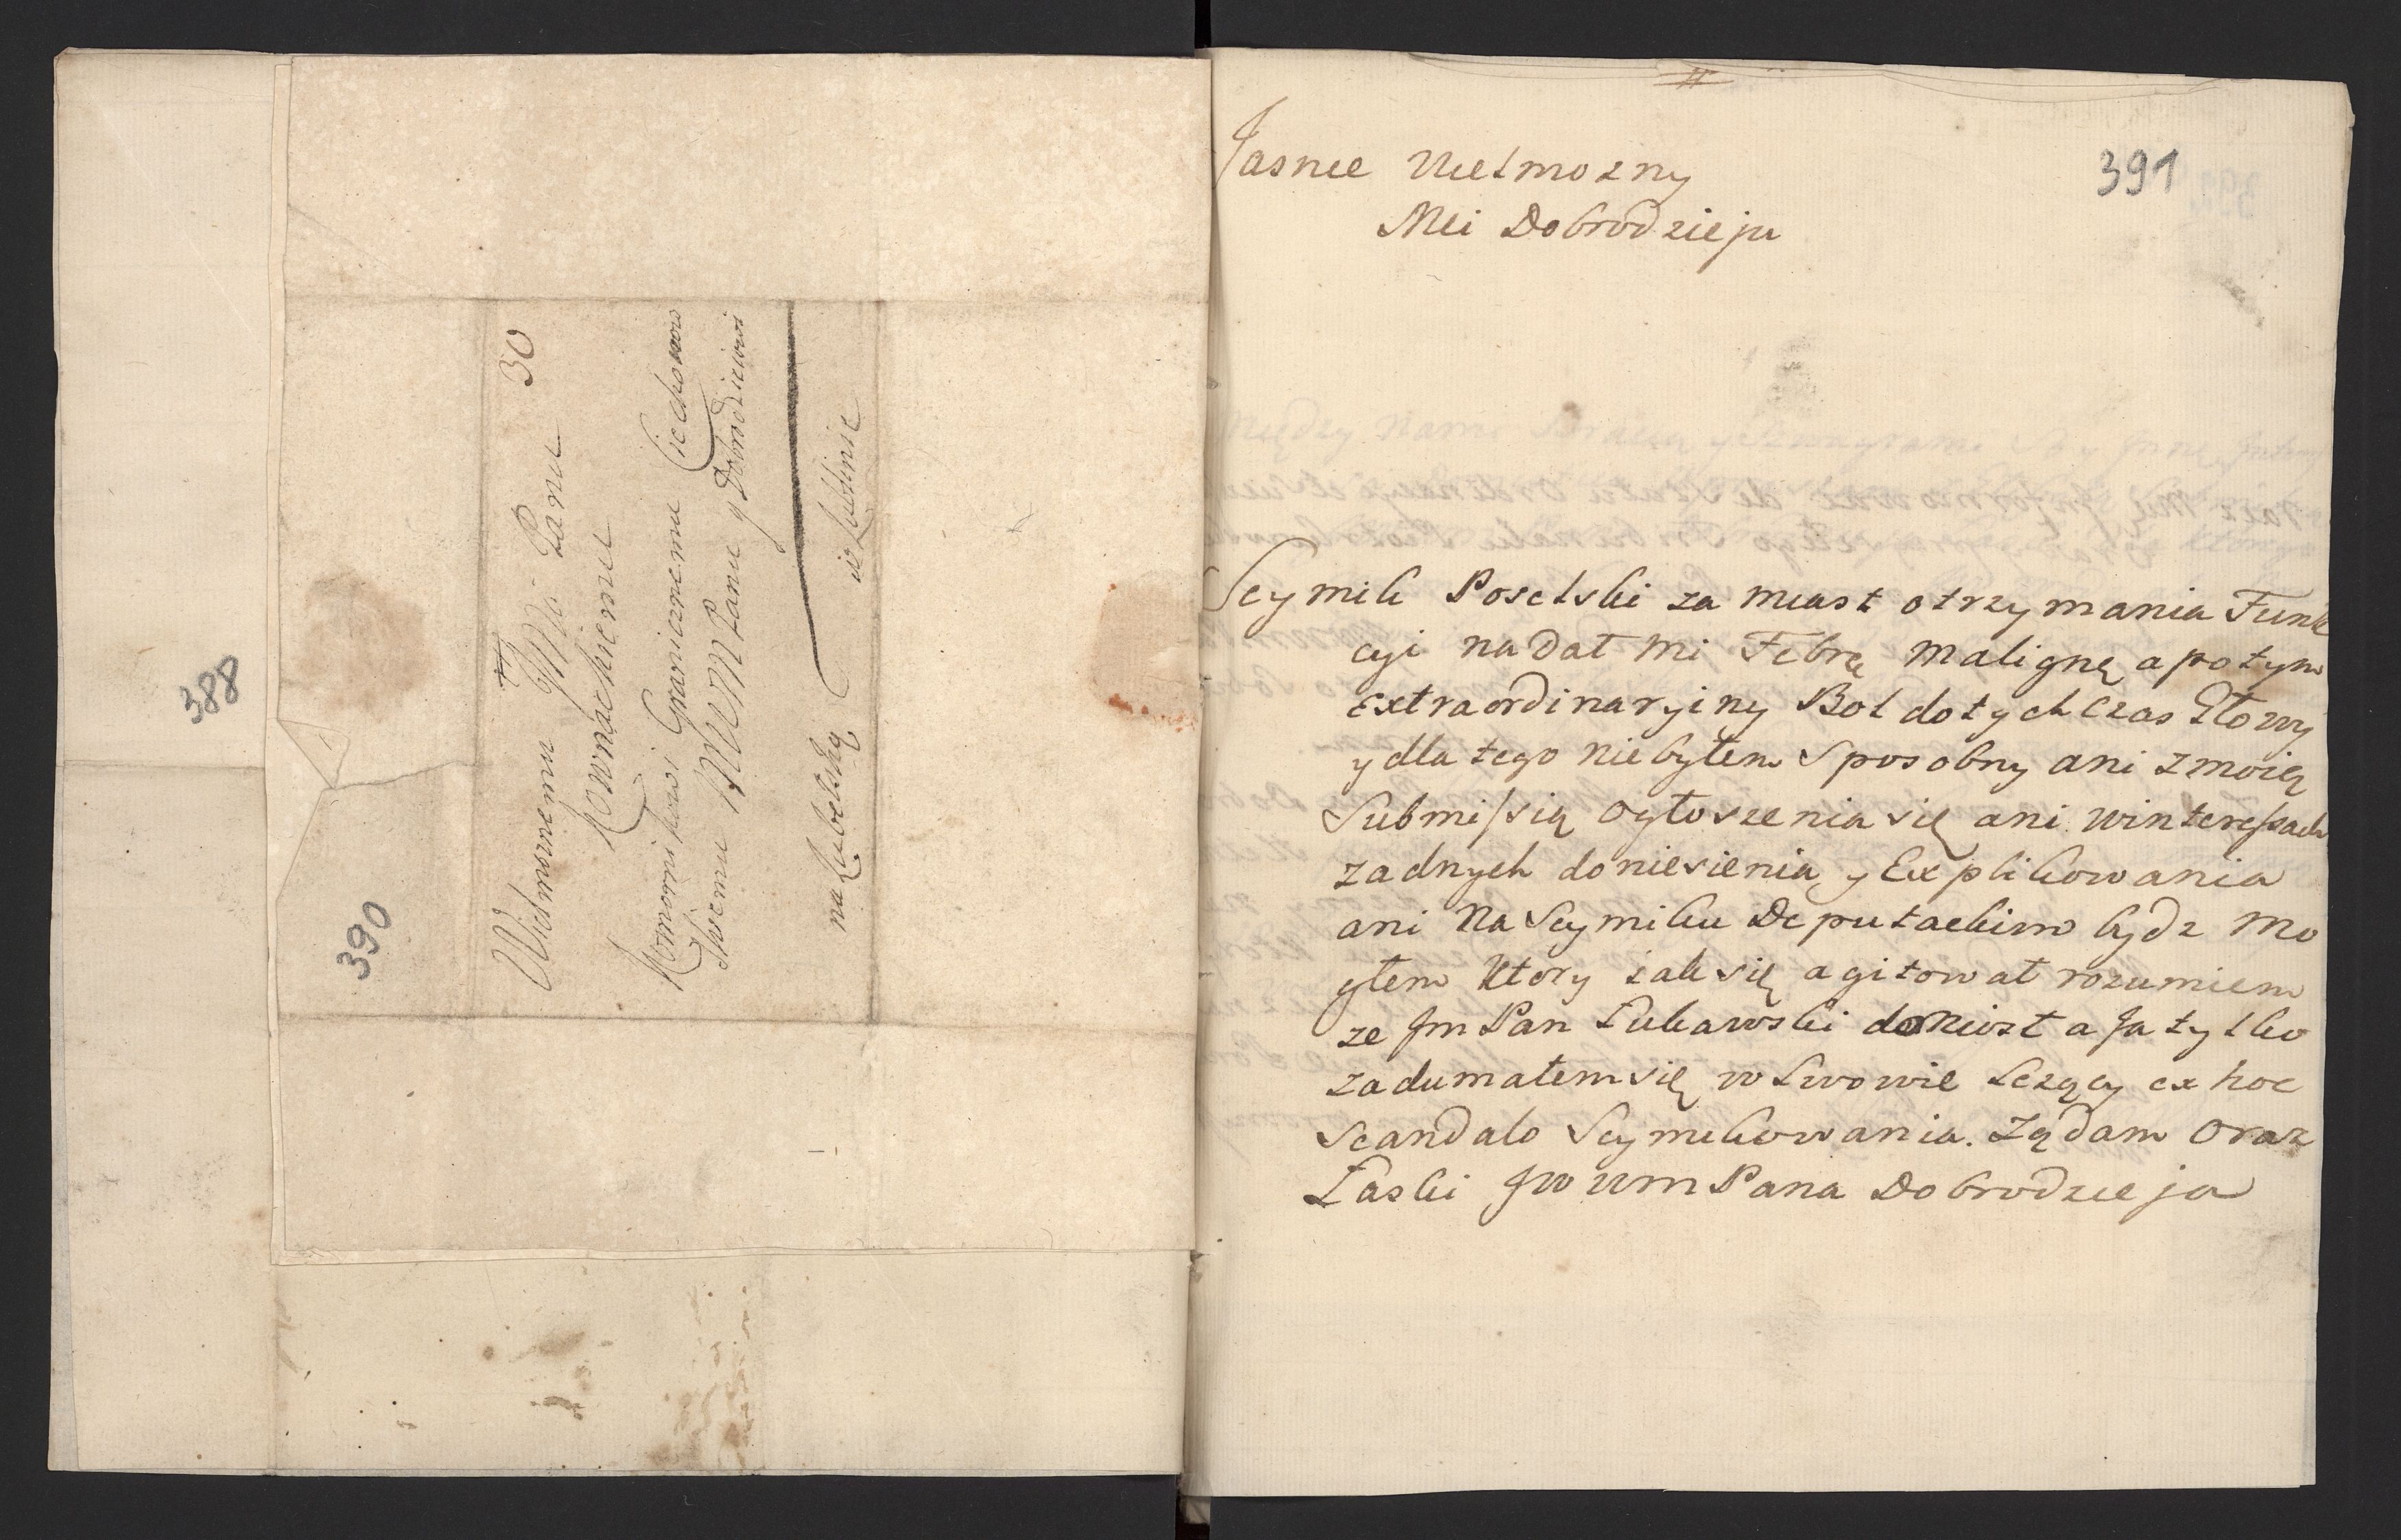 388
390
30
Wielmożnemu JMci Panu
Kownackiemu
Komornikowi Granicznemu Ciechanow
Memu WM Panu y Dobrodziewi
na Lubelską w Lublinie
391
Jasnie Wielmozny
Mci Dobrodzieju
Seymik Poselski za miast otrzymania Funk
cyi nadał mi Febrę malignę a potym
extraordinaryiny Bol dotychczas Głowy
y dla tego nie byłem sposobny ani z moią
Submissią ogłoszenia się ani w interessach
zadnych doniesienia y Explikowania
ani na Seymiku Deputackim bydz mo
głem ktory iak się agitował rozumiem
ze Jm Pan Łukawski doniosł a Ja tylko
zadumałem się w Lwowie lezący ex hoc
scandalo Seymikowania. Ządam oraz
Łaski JW WM Pana Dobrodzieja